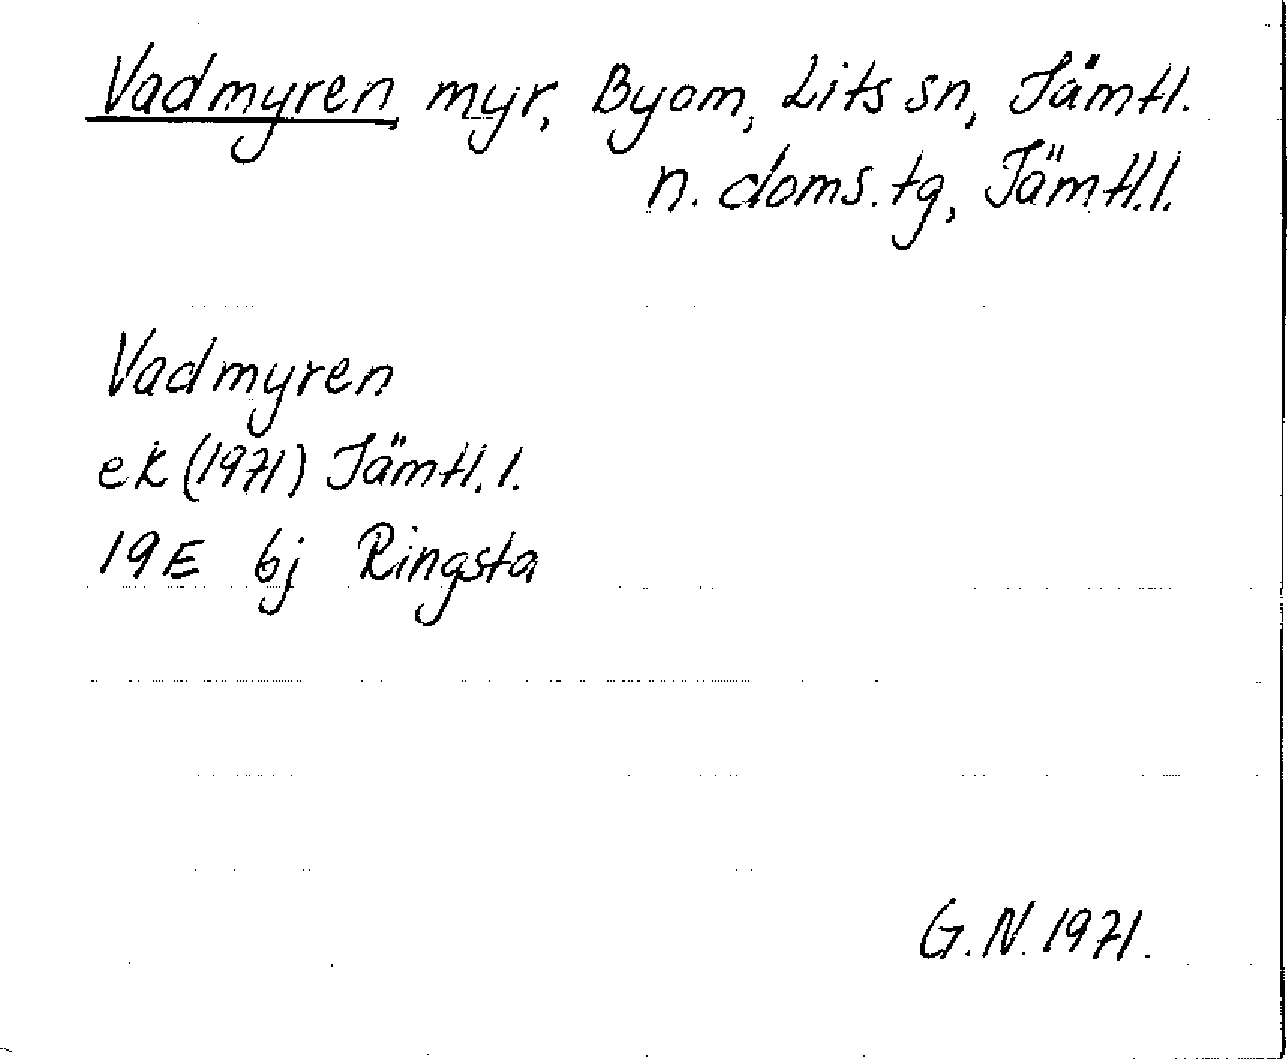 Vadmyren, myr, Byom, Lits sn, Jämtl.
n. doms.tg, Jämtl.l.
Vadmyren
ek (1971) Jämtl. l.
19E 6j Ringsta
G.N. 1971.